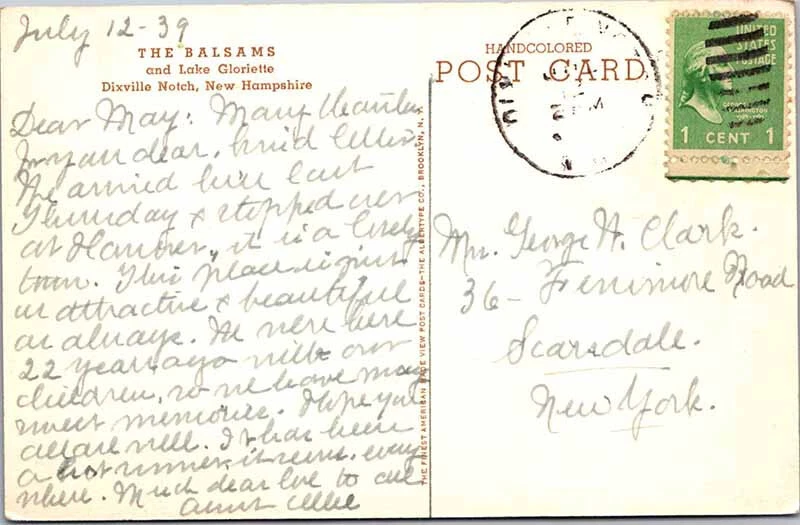 July 12-39
THE BALSAMS
and Lake Gloriette
Dixville Notch, New Hampshire
Dear May: Many thanks
for your dear, kind letter.
We arrived here last
Thursday & stopped over
at Hanover, it is a lovely
town. This place is just
as attractive & beautiful
as always. We were here
22 years ago with our
children, so we have many
sweet memories. I hope you
all are well. It has been
a hot summer, it seems, every
where. Much dear love to all
Aunt
THE FINEST AMERICAN MADE VIEW POST CARDS—THE ALBERTYPE CO., BROOKLYN, N. Y.
HANDCOLORED
POST CARD
UNITED
STATES
POSTAGE
GEORGE
WASHINGTON
1 CENT 1
Mrs. George H. Clark.
36- Fenimore Road
Scarsdale.
New York.